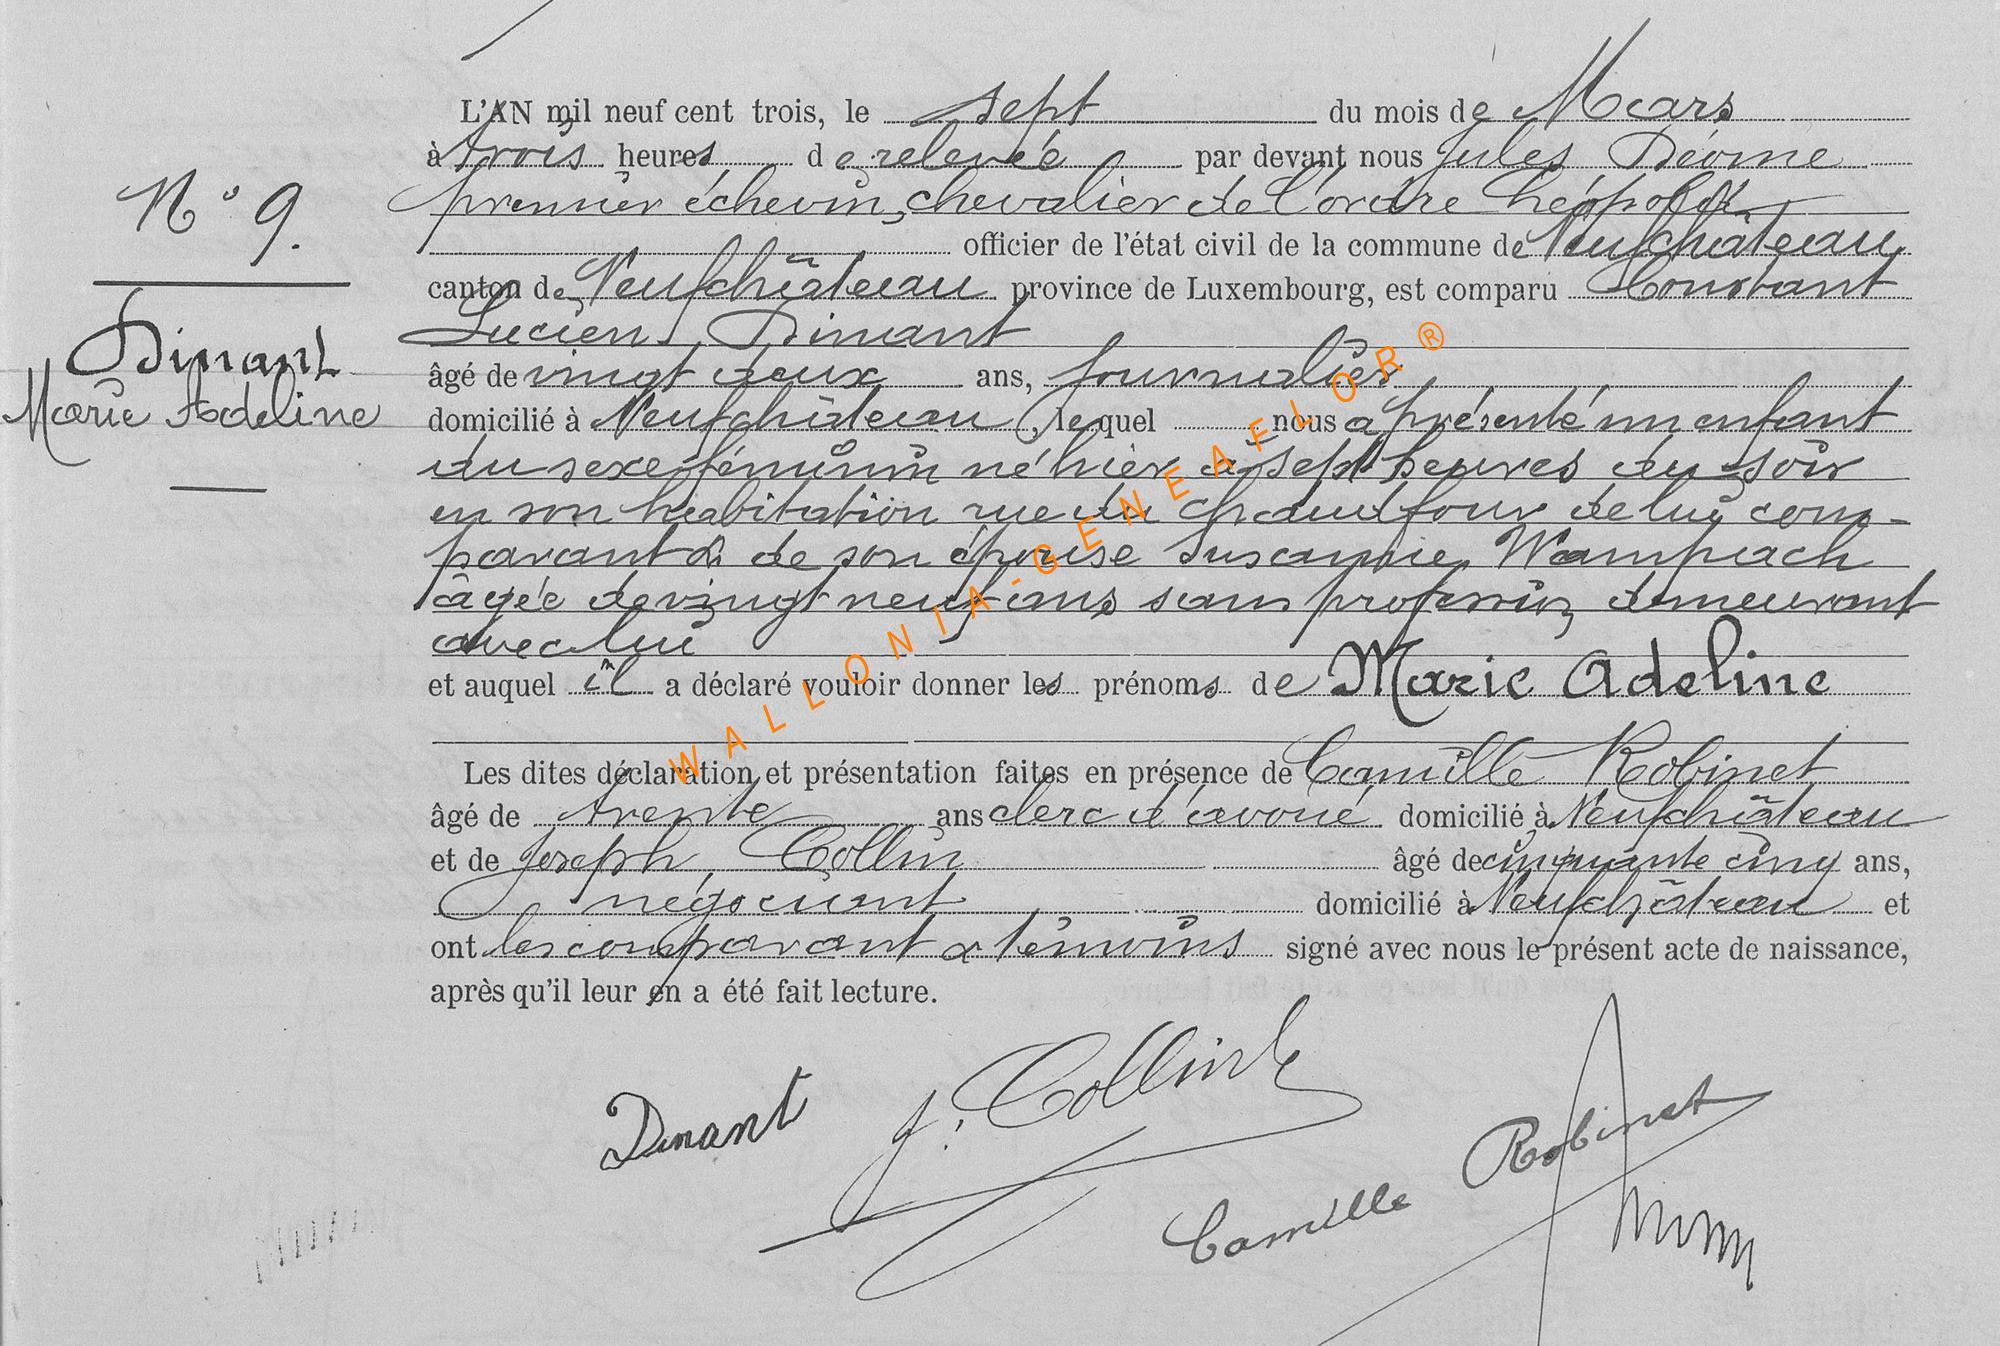 N° 9.
Dinant
Marie Adeline
L'AN mil neuf cent trois, le sept du mois de Mars
à trois heures de relevée par devant nous Jules
premier échevin, chevalier de l'ordre Léopold
officier de l'état civil de la commune de Neufchâteau
canton de Neufchâteau province de Luxembourg, est comparu Constant
Lucien Dinant
âgé de vingt deux ans, journalier
domicilié à Neufchâteau, lequel nous a présenté un enfant
du sexe féminin né hier à sept heures du soir
en son habitation rue du Chaudfour de lui com-
parant & de son épouse Susanne Wampach
âgée de vingt neuf ans sans profession, demeurant
avec lui
et auquel il a déclaré vouloir donner les prénoms de Marie Adeline
Les dites déclaration et présentation faites en présence de Camille Robinet
âgé de trente ans clerc d'avoué domicilié à Neufchâteau
et de Joseph Collin âgé de cinquante cinq ans,
négociant domicilié à Neufchâteau et
ont les comparant & témoins signé avec nous le présent acte de naissance,
après qu'il leur en a été fait lecture.
Dinant J. Collin
Camille Robinet
WALLONIA-GENEAFLOR®